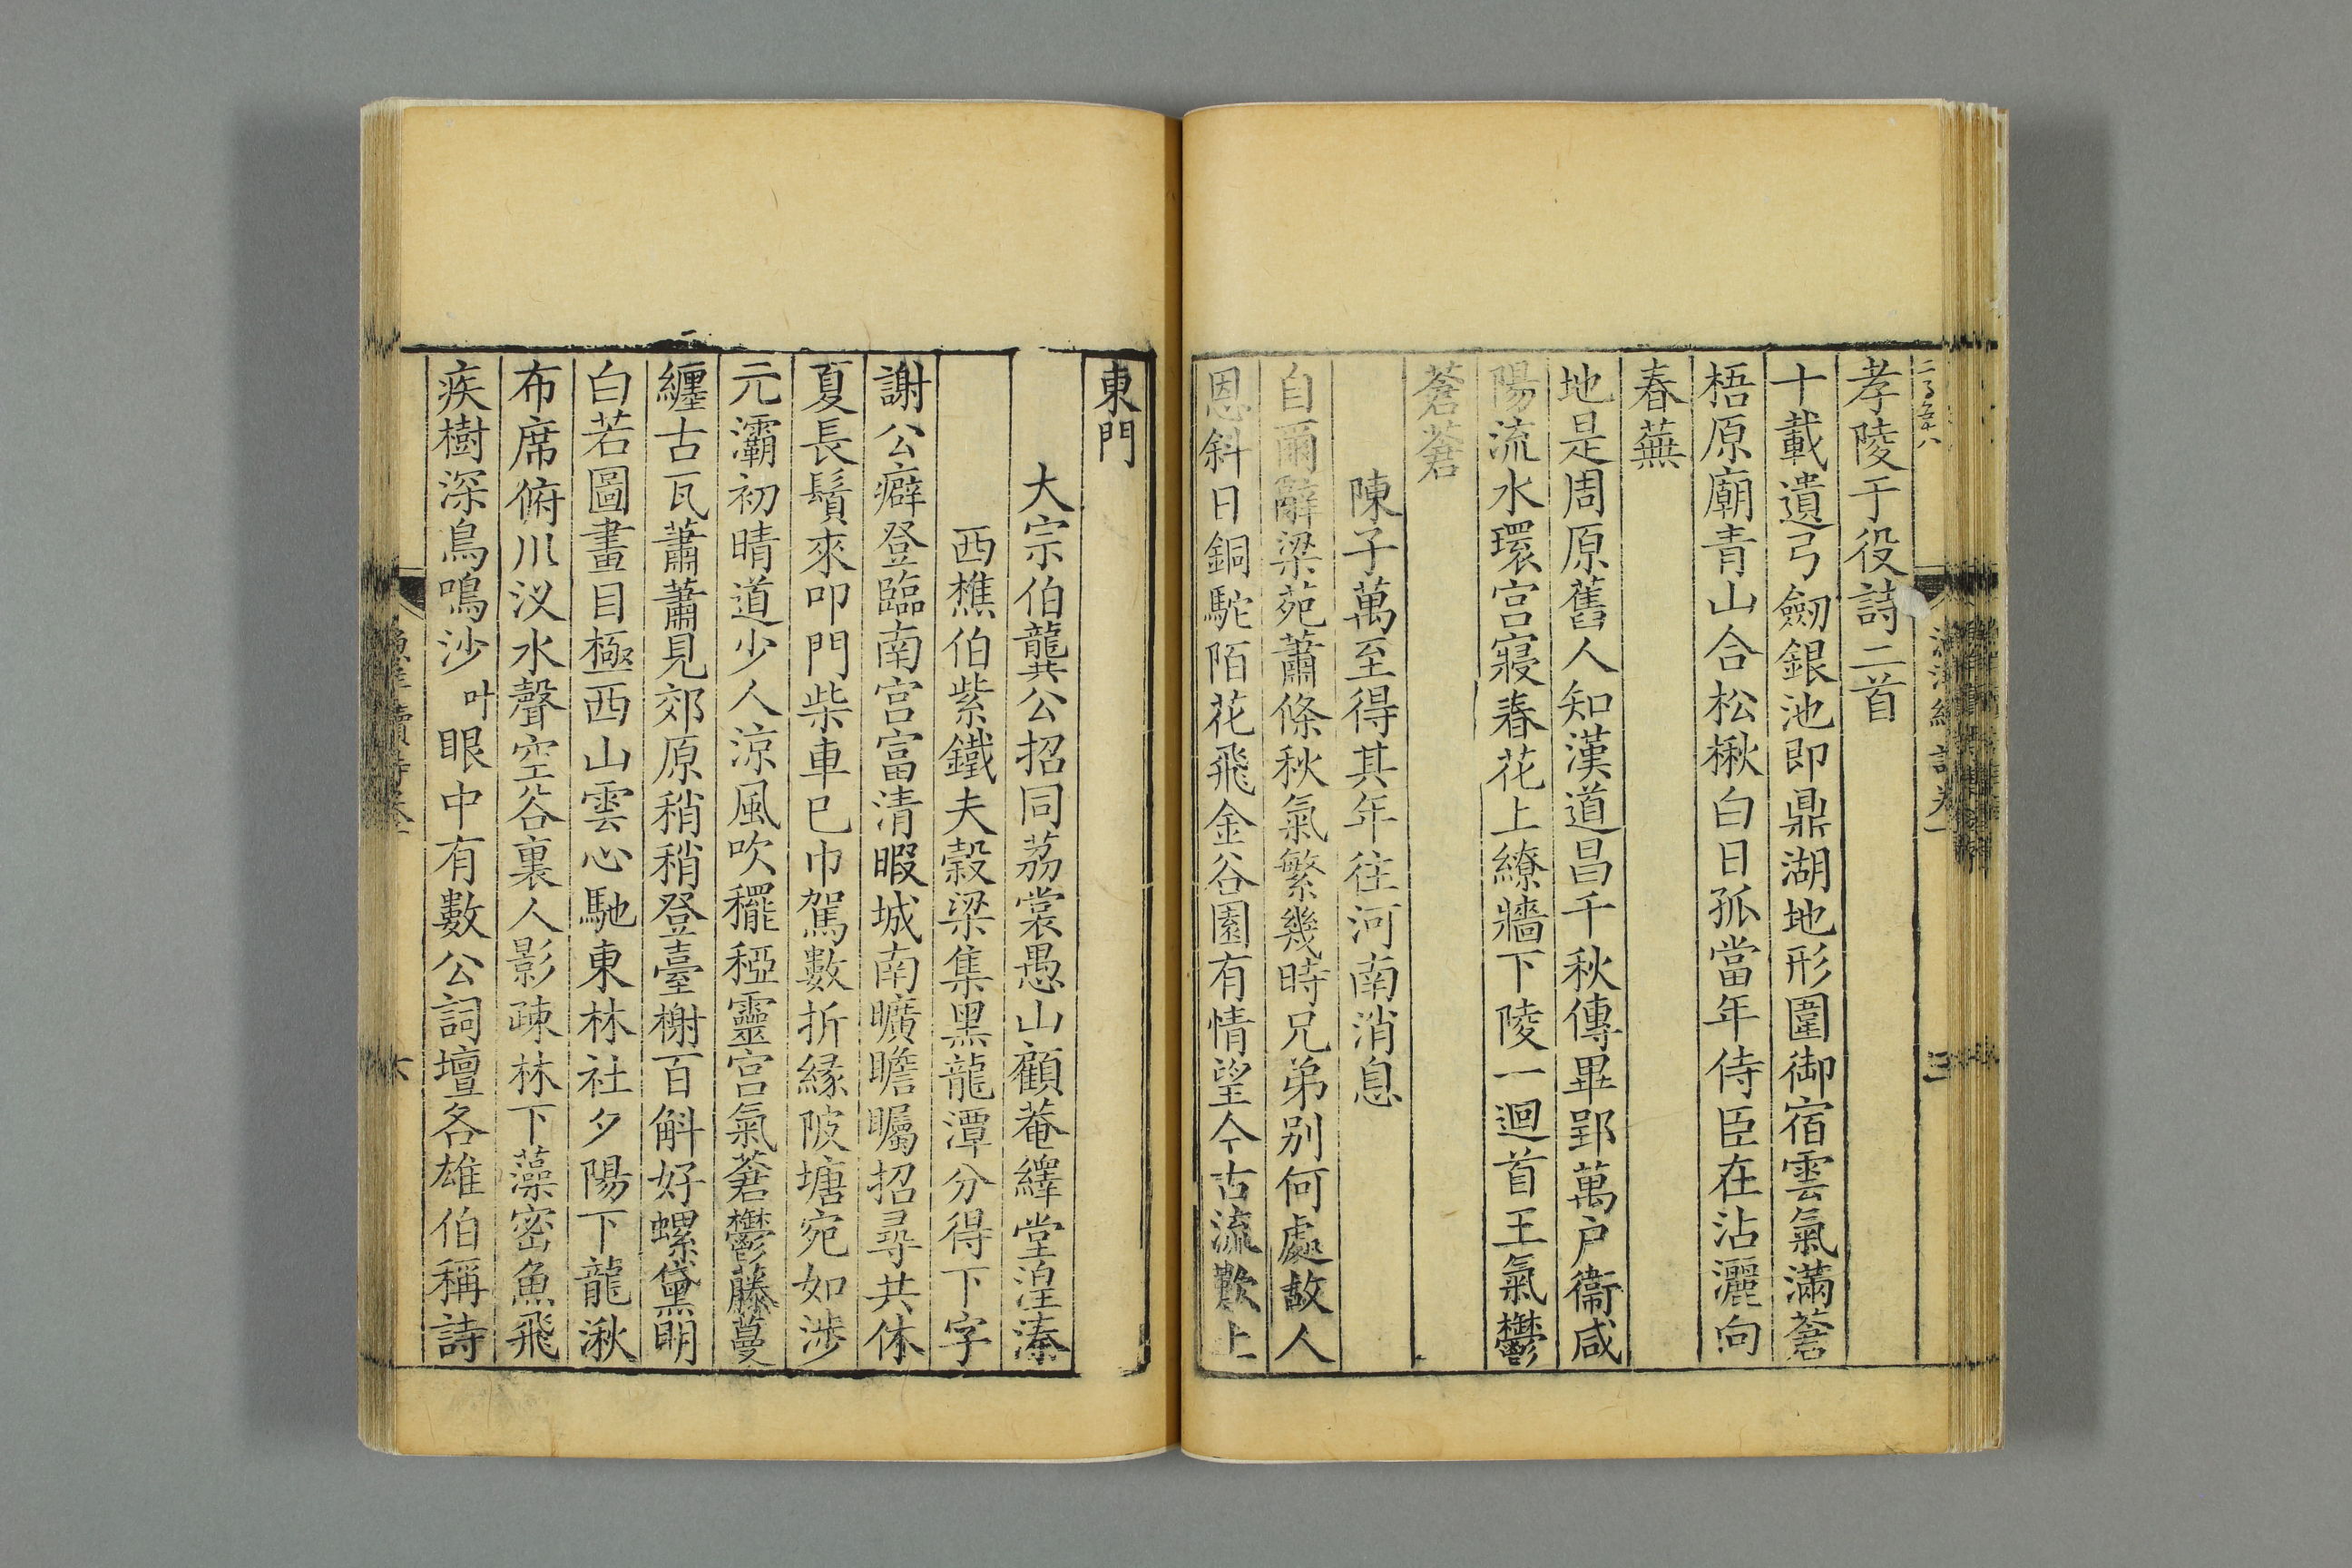 孝陵于役詩二首
十載遺弓劒銀池即鼎湖地形圍御宿雲氣滿蒼
梧原廟青山合松楸白日孤當年侍臣在沾灑向
春蕪
地是周原舊人知漢道昌千秋傳畢郢萬户衞咸
陽流水環宫寢春花上繚牆下陵一迴首王氣鬱
蒼蒼
陳子萬至得其年往河南消息
自爾辭梁苑蕭條秋氣繁幾時兄弟别何處故人
恩斜日銅駝陌花飛金谷園有情望今古流歎上
東門
大宗伯龔公招同荔裳愚山顧菴繹堂湟溱
西樵伯紫鐵夫穀梁集黑龍潭分得下字
謝公癖登臨南宫富清暇城南曠瞻矚招尋共休
夏長鬚來叩門柴車巳巾駕數折緣陂塘宛如涉
元灞初晴道少人涼風吹䆉稏靈宫氣蒼鬱藤蔓
纒古瓦蕭蕭見郊原稍稍登臺榭百斛好螺黛明
白若圖畫目極西山雲心馳東林社夕陽下龍湫
布席俯川汊水聲空谷裏人影疎林下藻密魚飛
疾樹深鳥鳴沙叶眼中有數公詞壇各雄伯稱詩
六